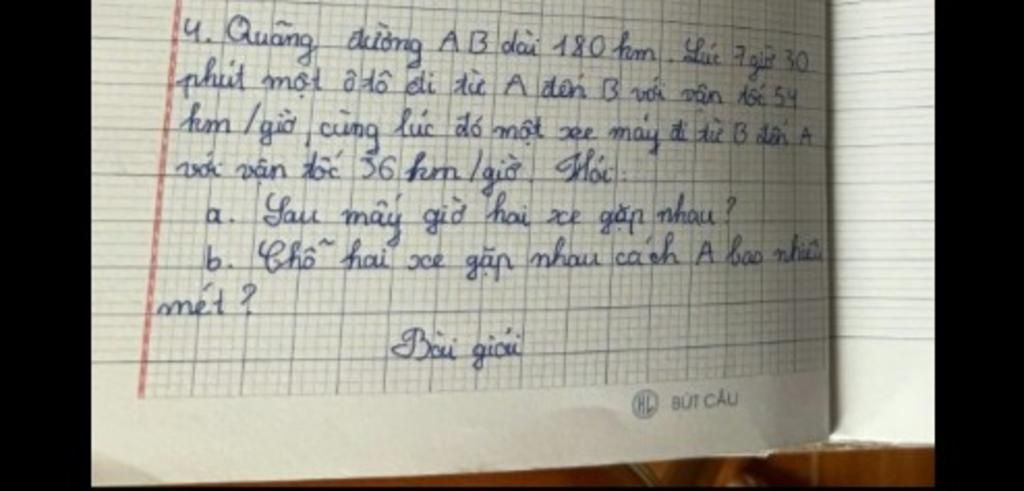 4. Quãng đường AB dài 180 km. Lúc 7 giờ 30
phút một ô tô đi từ A đến B với vận tốc 54
km/giờ, cùng lúc đó một xe máy đi từ B đến A
với vận tốc 36 km/giờ. Hỏi:
a. Sau mấy giờ hai xe gặp nhau?
b. Chỗ hai xe gặp nhau cách A bao nhiêu
mét?
Bài giải
HL BÚT CÂU